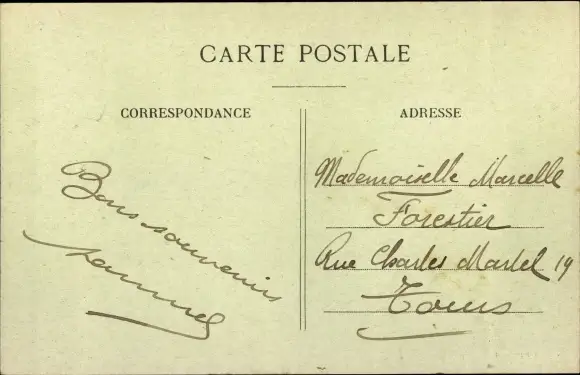 CARTE POSTALE
CORRESPONDANCE
Bons souvenirs
ADRESSE
Mademoiselle Marcelle
Forestier
Rue Charles Martel 19
Tours